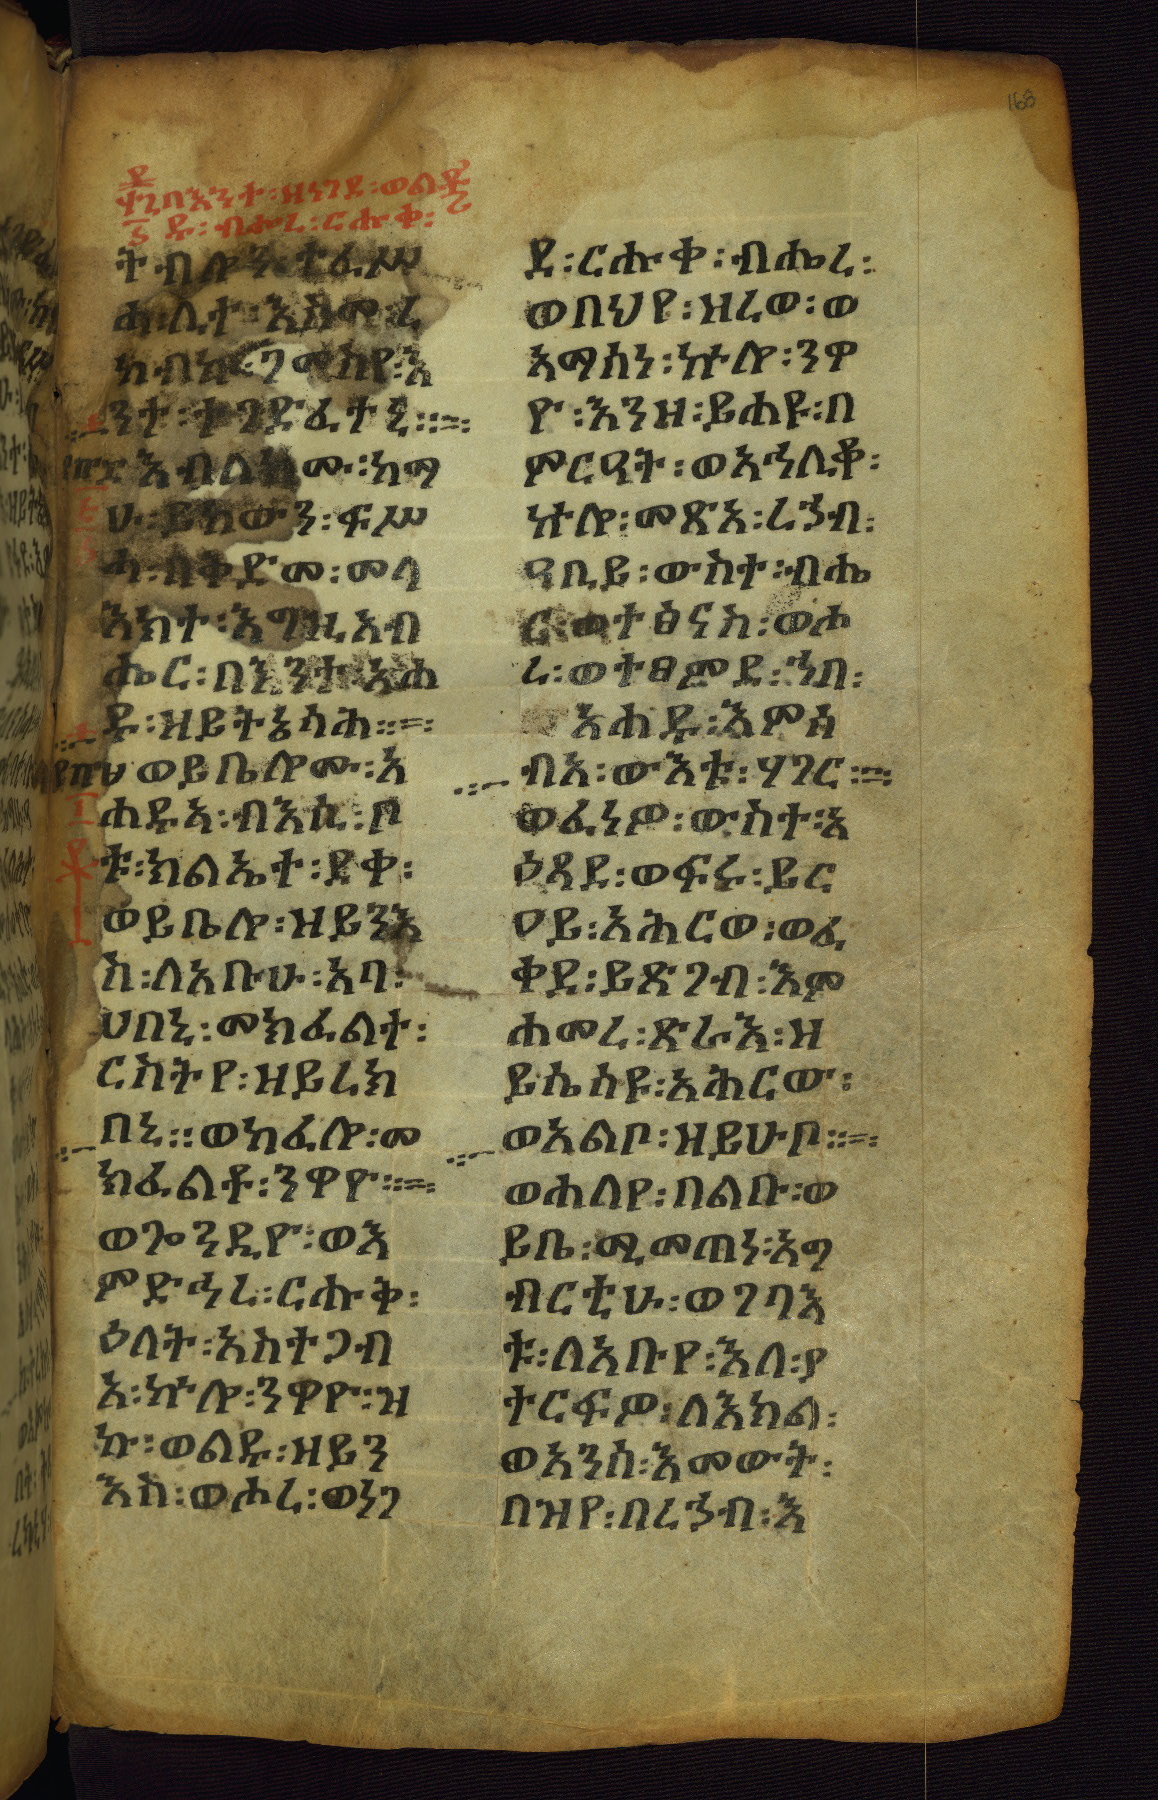 168
በእንተ፡ዘነገደ፡ወልዱ
ዱ፡ብሔረ፡ርሑቀ፡
ት፡ብሎን፡ተፈሥ
ሒ፡ሊተ፡እስመ፡ረ
ከብኩ፡ድሪምየ፡እ
ንተ፡ተገድፈተኒ፡፡
እብለክሙ፡ከማ
ሁ፡ይከውን፡ፍሥ
ሓ፡በቅድመ፡መላ
እክተ፡እግዚአብ
ሔር፡በእንተ፡አሐ
ዱ፡ዝይትኔሳሕ፡፡
ወይቤሎሙ፡አ
ሐዱኣ፡ብእሲ፡ቦ
ቱ፡ክልኤተ፡ደቀ፡
ወይቤሎ፡ዝይንእ
ስ፡ለአቡሁ፡አባ፡
ሀበኒ፡መክፈልተ፡
ርስትየ፡ዝይረክ
በኒ፡፡ወከፈሎ፡መ
ክፈልቶ፡ንዋዮ፡፡
ወጐንዲዮ፡ወእ
ምድኅረ፡ርሑቅ፡
ዕለት፡አስተጋብ
አ፡ኵሎ፡ንዋዮ፡ዝ
ኩ፡ወልዱ፡ዘይን
እስ፡ወሖረ፡ወነገ
ደ፡ርሑቀ፡ብሔረ፡
ወበህየ፡ዝረወ፡ወ
ኣማሰነ፡ኵሎ፡ንዋ
ዮ፡እንዘ፡ይሐዩ፡በ
ምርዓት፡ወአኅሊቆ፡
ኵሎ፡መጽአ፡ረኃብ፡
ዓቢይ፡ውስተ፡ብሔ
ር፡ወተፅናስ፡ወሖ
ረ፡ወተፀምደ፡ኀበ፡
አሐዱ፡እምሰ
ብአ፡ውእቱ፡ሃገር፡፡
ወፈነዎ፡ውስተ፡አ
ዕጻደ፡ወፍሩ፡ይር
ዐይ፡አሕርወ፡ወፈ
ቀደ፡ይጽገብ፡እም
ሐመረ፡ጽራእ፡ዝ
ይሴሰዩ፡አሕርው፡
ወአልቦ፡ዝይሁቦ፡፡
ወሐለየ፡በልቡ፡ወ
ይቤ፡ሚመጠነ፡አግ
ብርቲሁ፡ወገባእ
ቱ፡ለአቡየ፡እለ፡ያ
ተርፍዎ፡ለእክል፡
ወአንሰ፡እመውት፡
በዝየ፡በረኃብ፡እ